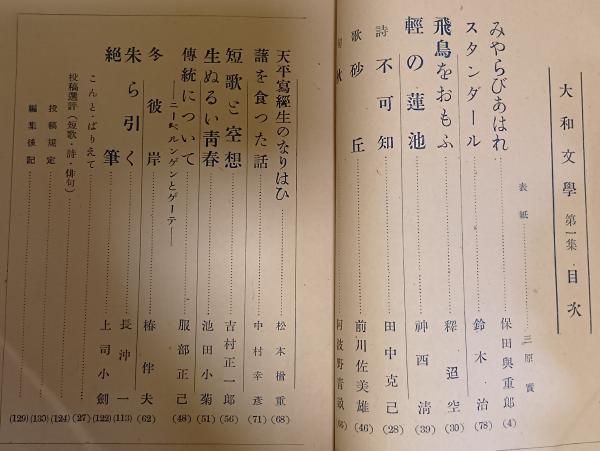 大和文學 第一集・目次
表紙 三原實
みやらびあはれ 保田與重郎 (4)
スタンダール 鈴木治 (78)
飛鳥をおもふ 釋迢空 (30)
輕の蓮池 神西清 (39)
詩 不可知 田中克己 (28)
歌 砂丘 前川佐美雄 (46)
阿波野青畝
天平寫經生のなりはひ 松本楢重 (68)
譜を食つた話 中村幸彦 (71)
短歌と空想 吉村正一郎 (56)
生ぬるい青春 池田小菊 (51)
傳統について 服部正己 (48)
――ニーベルンゲンとゲーテ――
冬彼岸 椿伴夫 (62)
朱ら引く 長沖一 (113)
絶筆 上司小劍 (122)
こんと・ぱりえて (27)
投稿選評(短歌・詩・俳句) (124)
投稿規定 (133)
編集後記 (129)